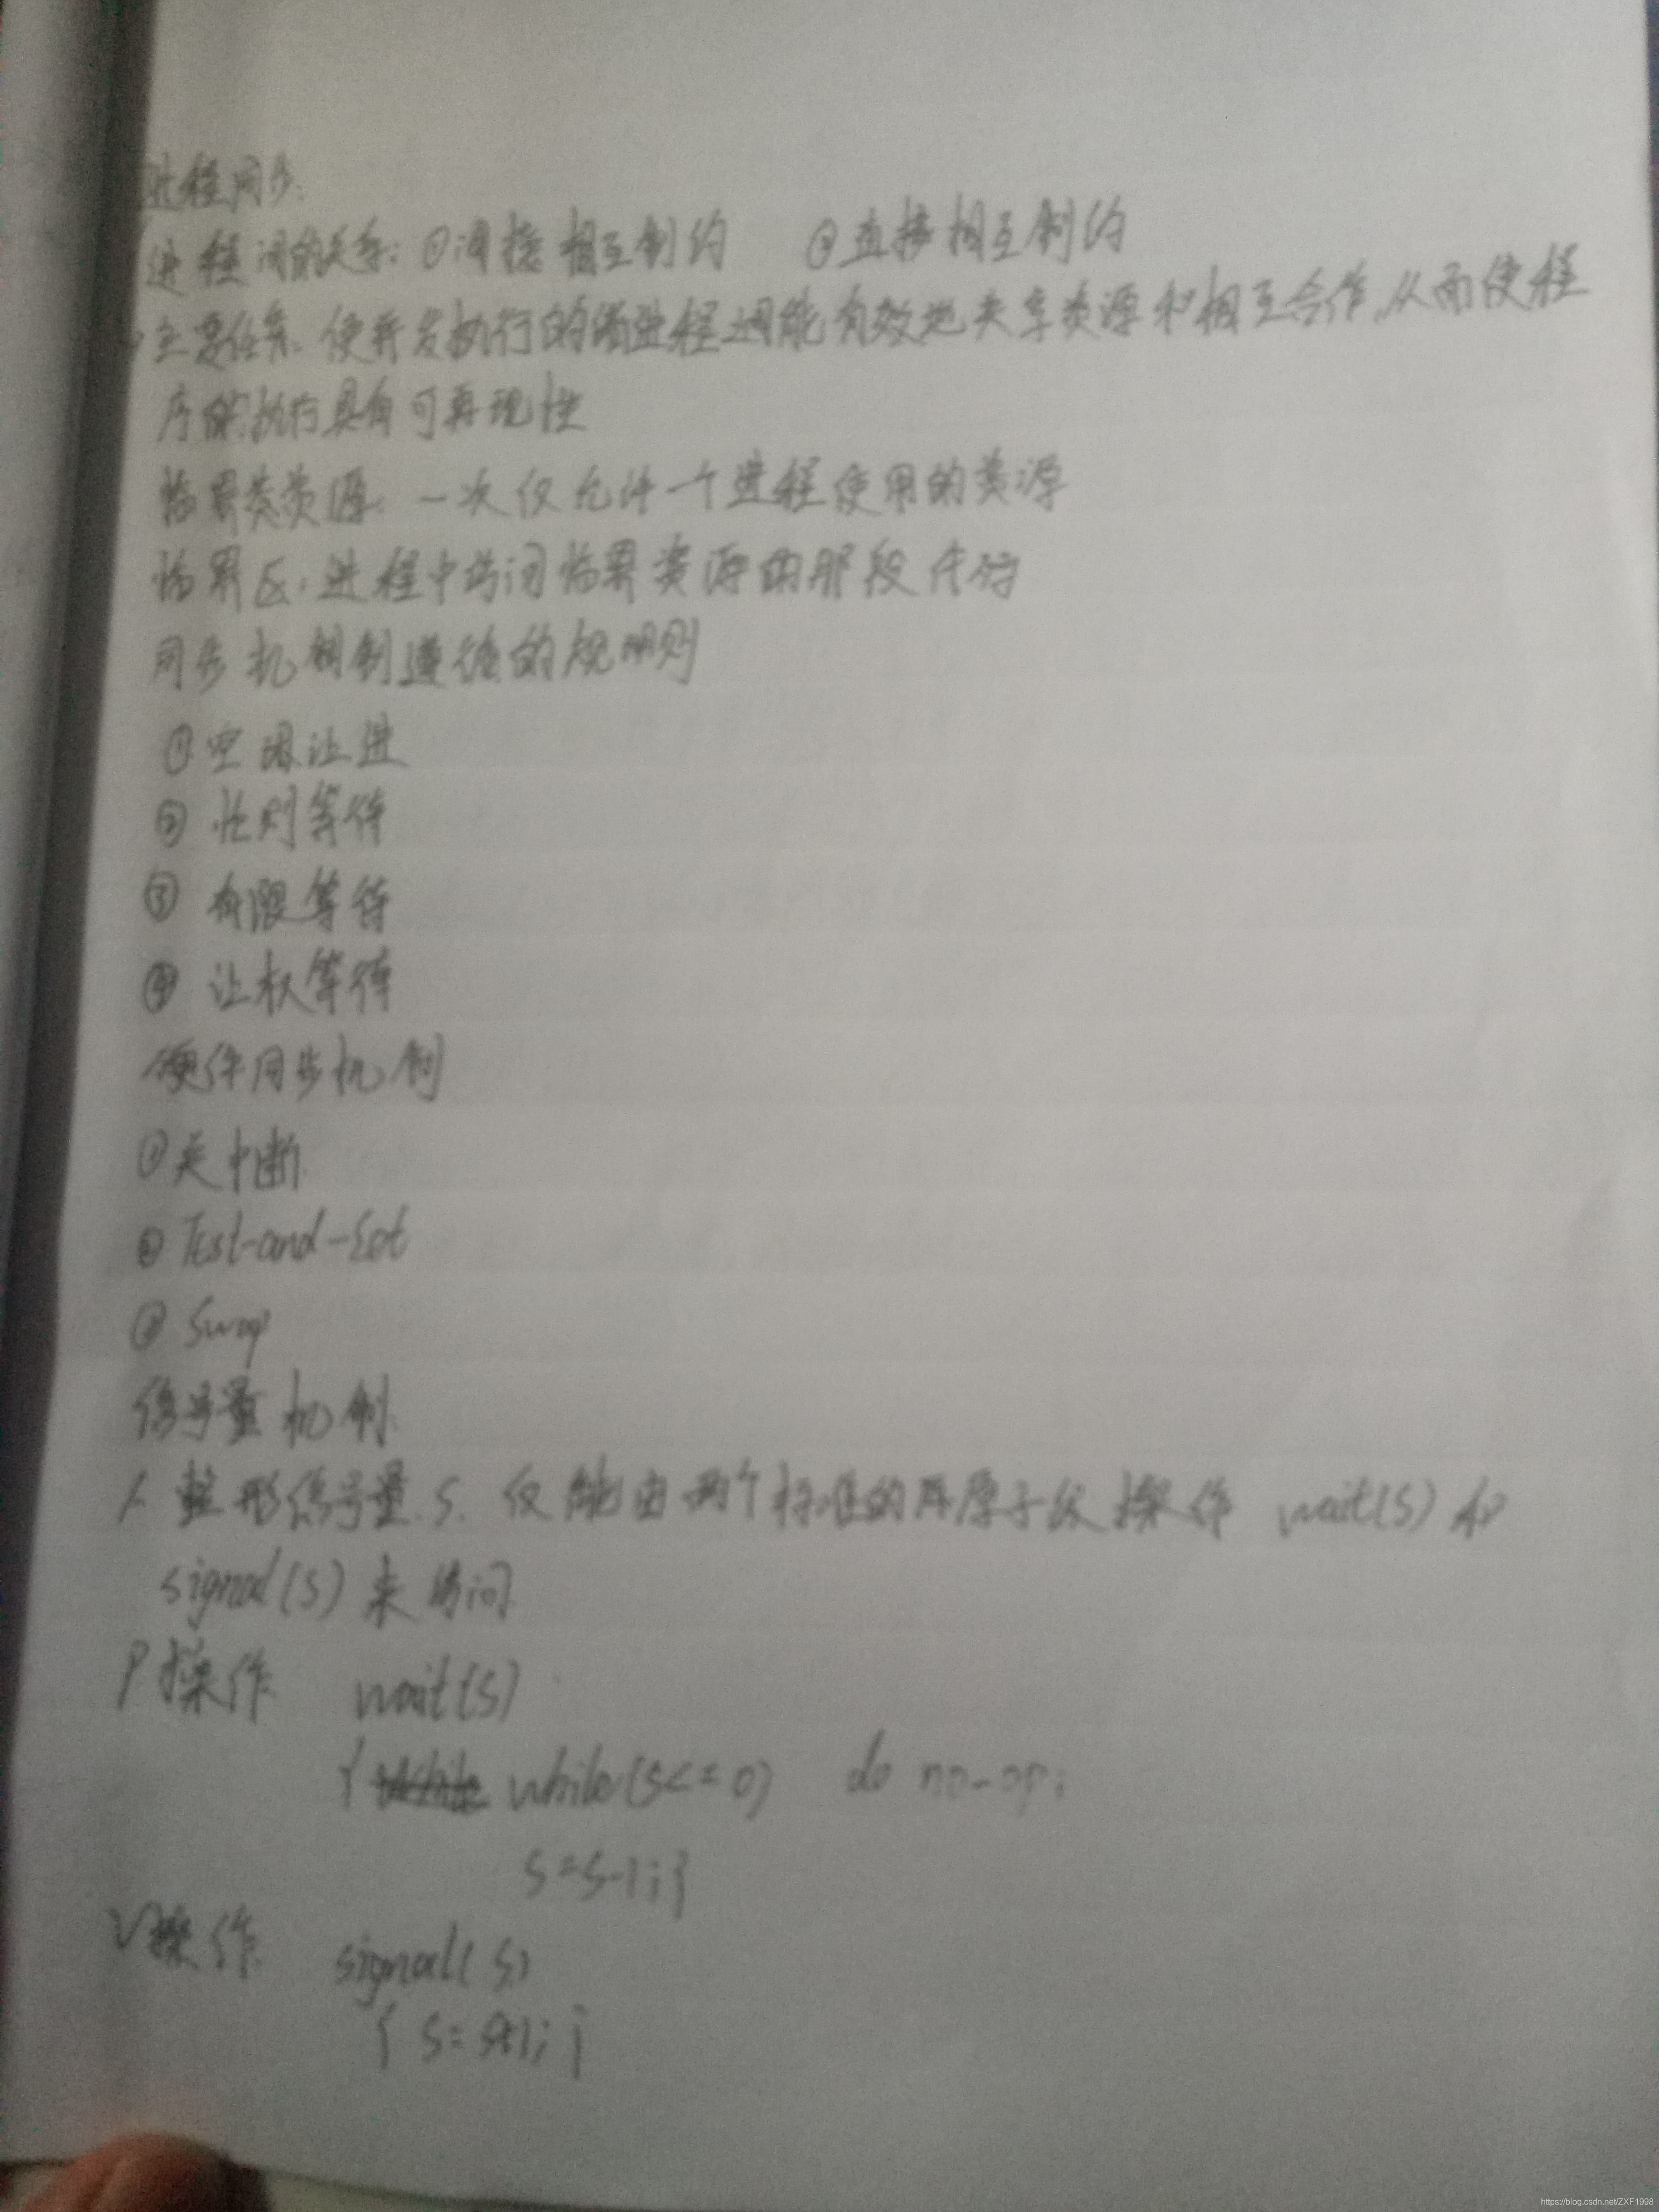 进程同步.
进程间的关系: ①间接相互制约 ②直接相互制约
主要任务: 使并发执行的诸进程间能有效地共享资源和相互合作,从而使程
序的执行具有可再现性
临界类资源: 一次仅允许一个进程使用的资源
临界区: 进程中访问临界资源的那段代码
同步机制遵循的规则
①空闲让进
② 忙则等待
③ 有限等待
④ 让权等待
硬件同步机制
①关中断
② Test-and-Set
③ Swap
信号量机制
整形信号量.S. 仅能由两个标准的原子操作 wait(S) 和
signal(S) 来访问
P操作 wait(S)
{ while(S<=0) do no-op;
S=S-1;}
V操作 signal(S)
{ S=S+1; }
https://blog.csdn.net/ZXF1998